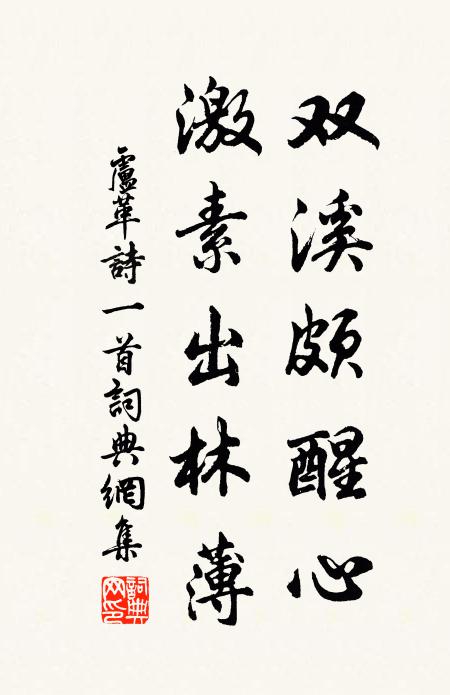 双溪頗醒心
激素出林薄
盧革詩一首詞典網集
詞典網印